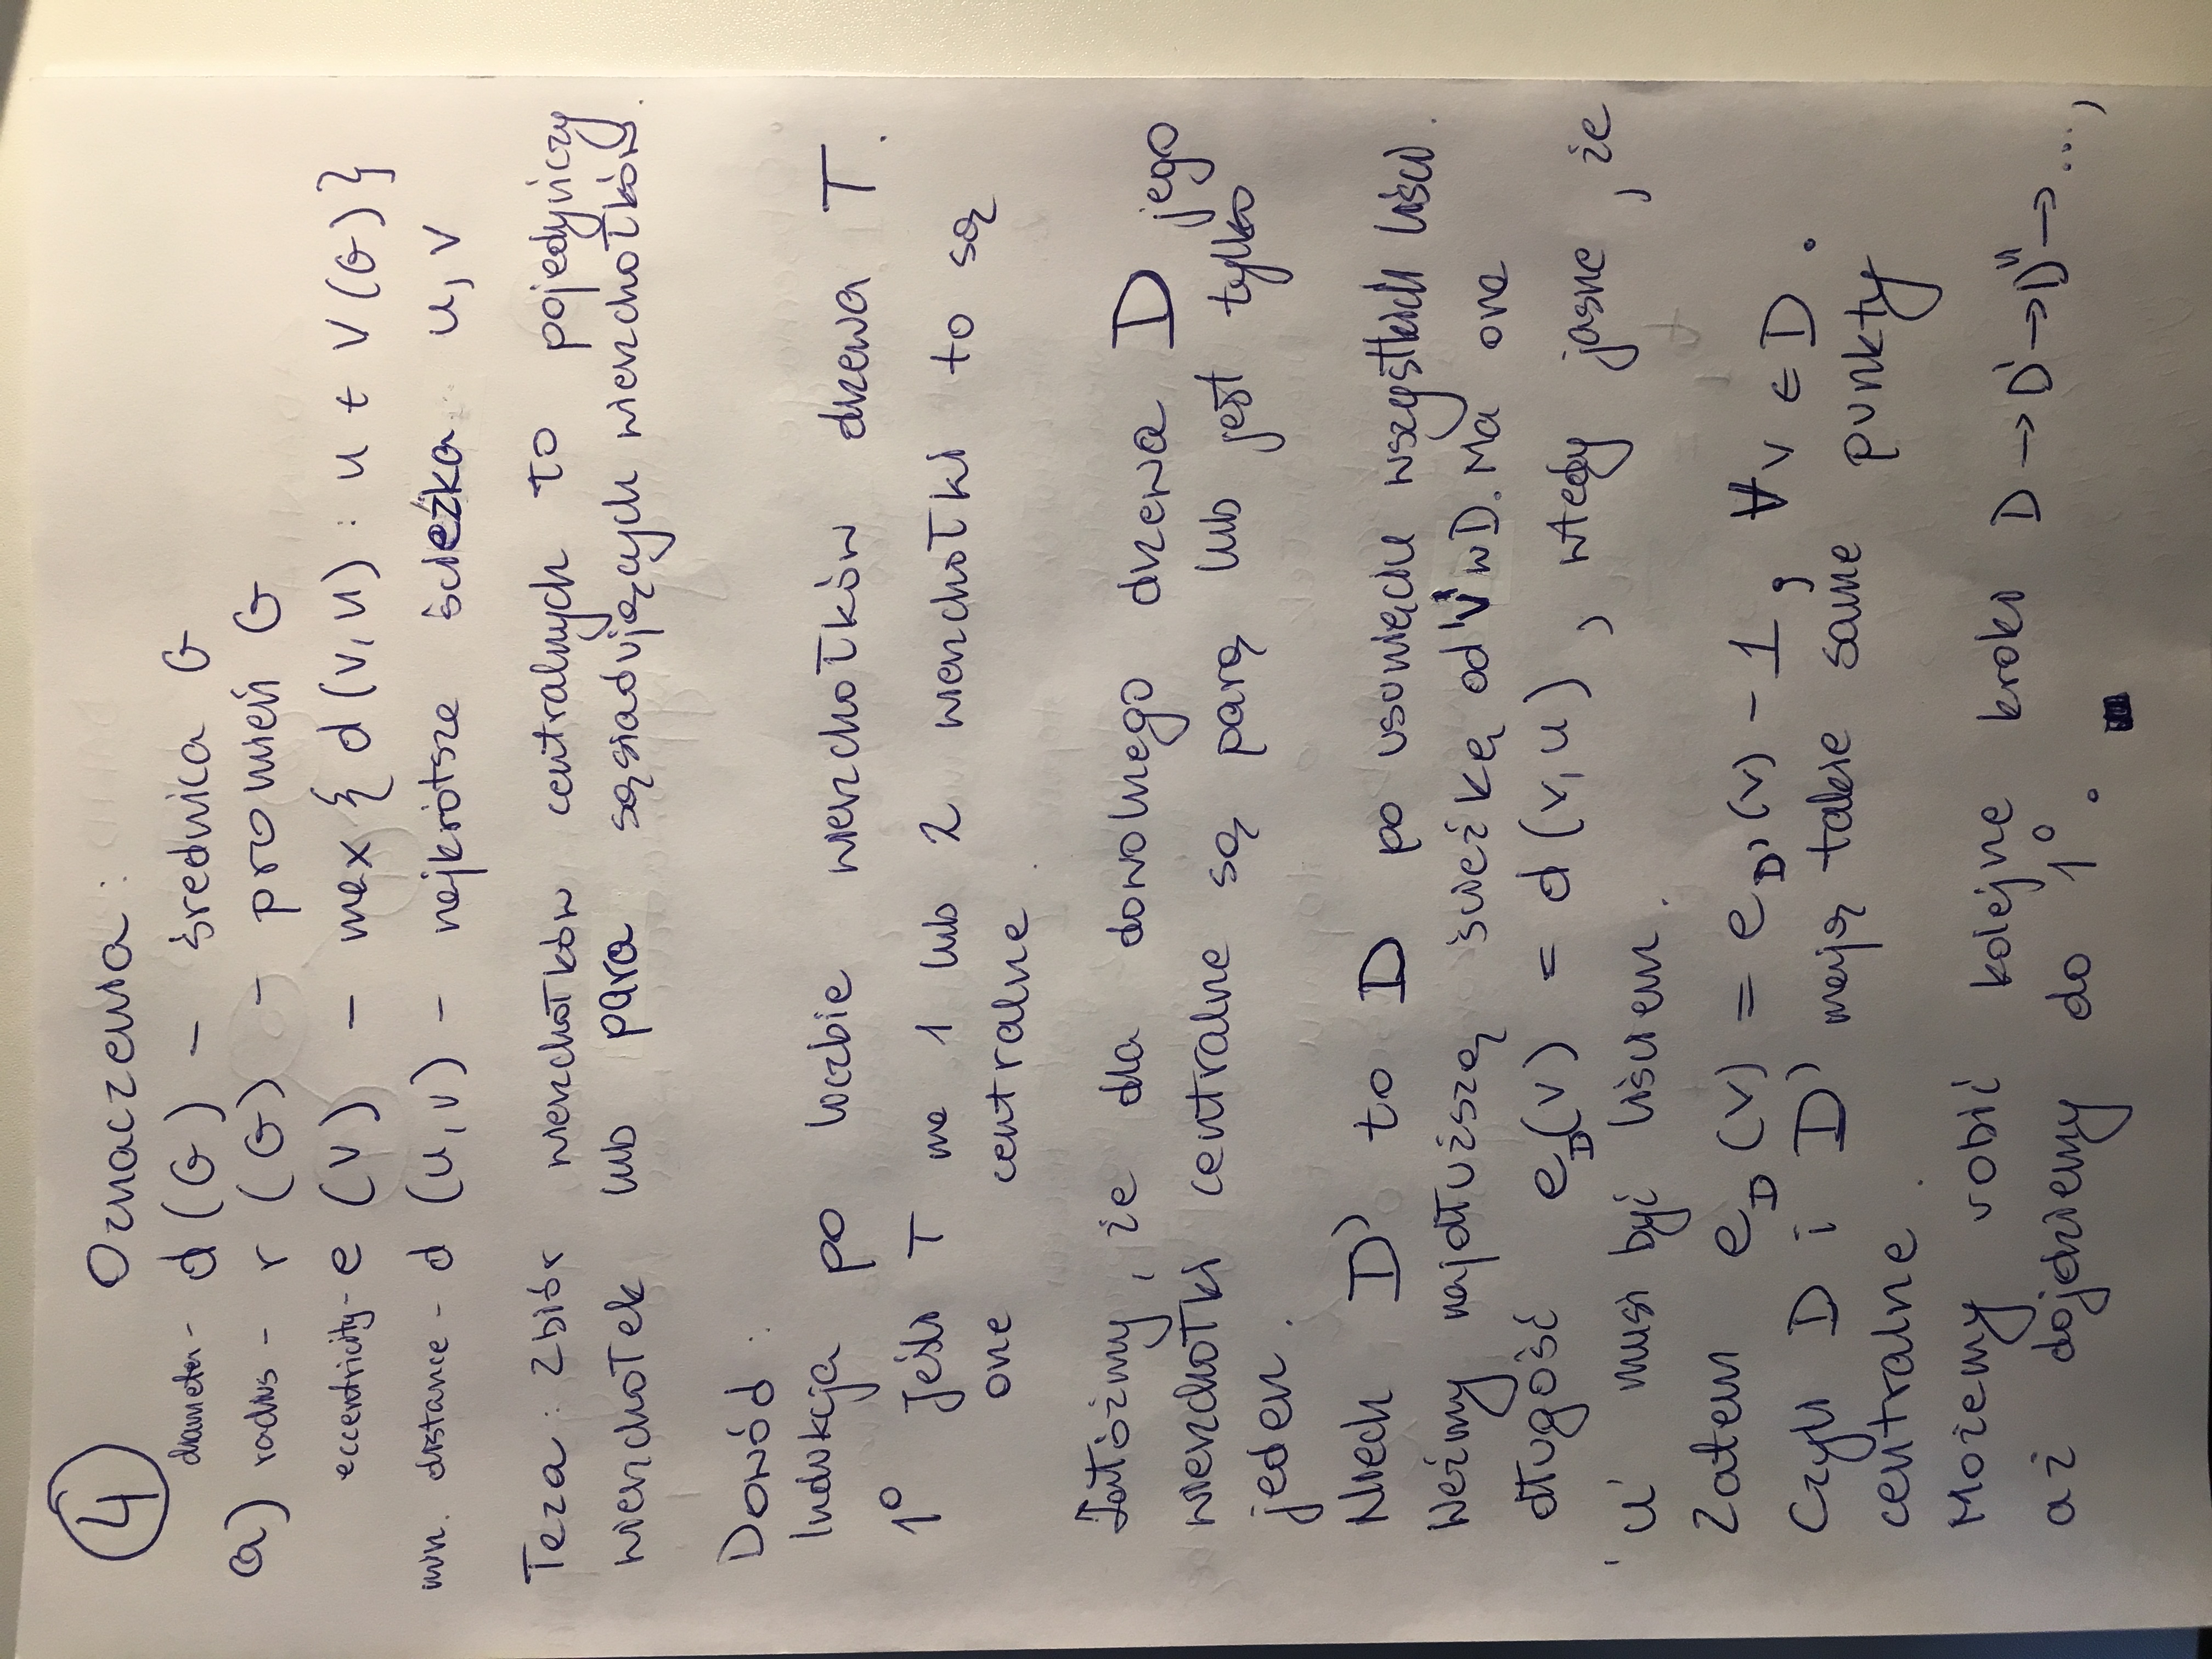 4 Oznaczenia:
diameter - d(G) - średnica G
a) radius - r(G) - promień G
eccentricity - e(v) - max { d(v,u) : u ∈ V(G) }
min. distance - d(u,v) - najkrótsza ścieżka u, v
Teza: Zbiór wierzchołków centralnych to pojedyńczy
wierzchołek lub para sąsiadujących wierzchołków.
Dowód:
Indukcja po liczbie wierzchołków drzewa T.
1° Jeśli T ma 1 lub 2 wierzchołki to są
one centralne.
Załóżmy, że dla dowolnego drzewa D jego
wierzchołki centralne są parą lub jest tylko
jeden.
Niech D' to D po usunięciu wszystkich liści.
Weźmy najdłuższą ścieżkę od 'v' w D. Ma ona
długość e_D(v) = d(v,u), wtedy jasne, że
'u' musi być liściem.
Zatem e_D(v) = e_D'(v) - 1, ∀v ∈ D.
Czyli D i D' mają takie same punkty
centralne.
Możemy robić kolejne kroki D → D' → D'' → ...,
aż dojdziemy do 1°.